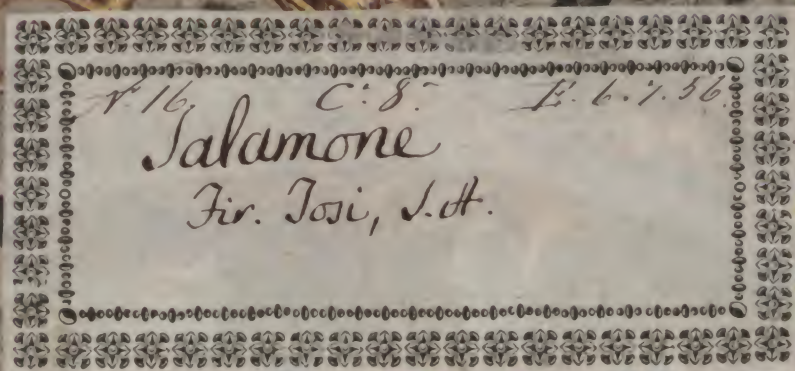 N. 16. C. 8. E. 6. 7. 56.
Salamone
Fir. Tosi, s.d.